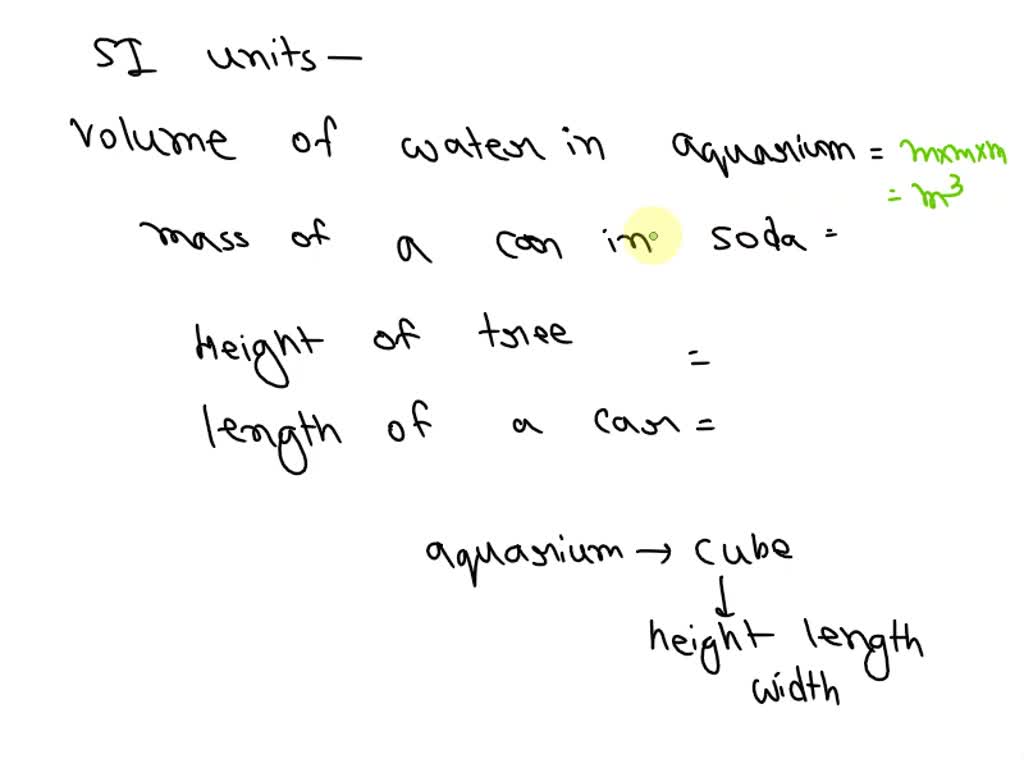 SI units —
Volume of water in aquarium = m×m×m
= m³
mass of a can in soda =
Height of tree =
length of a car =
aquarium → cube
↓
height length
width